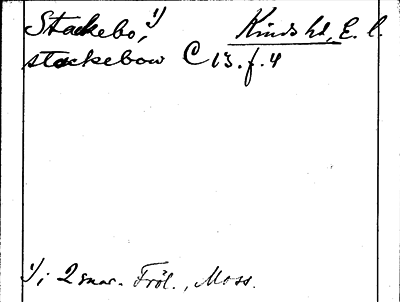 Stackebo, 1) Kinds hd, E. l.
stackebow C 13.f.4
1) i 2 snar. Fröl., Moss.